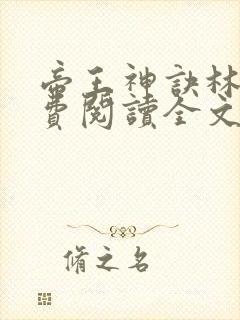 帝王神訣林
費閱讀全文
脩之名